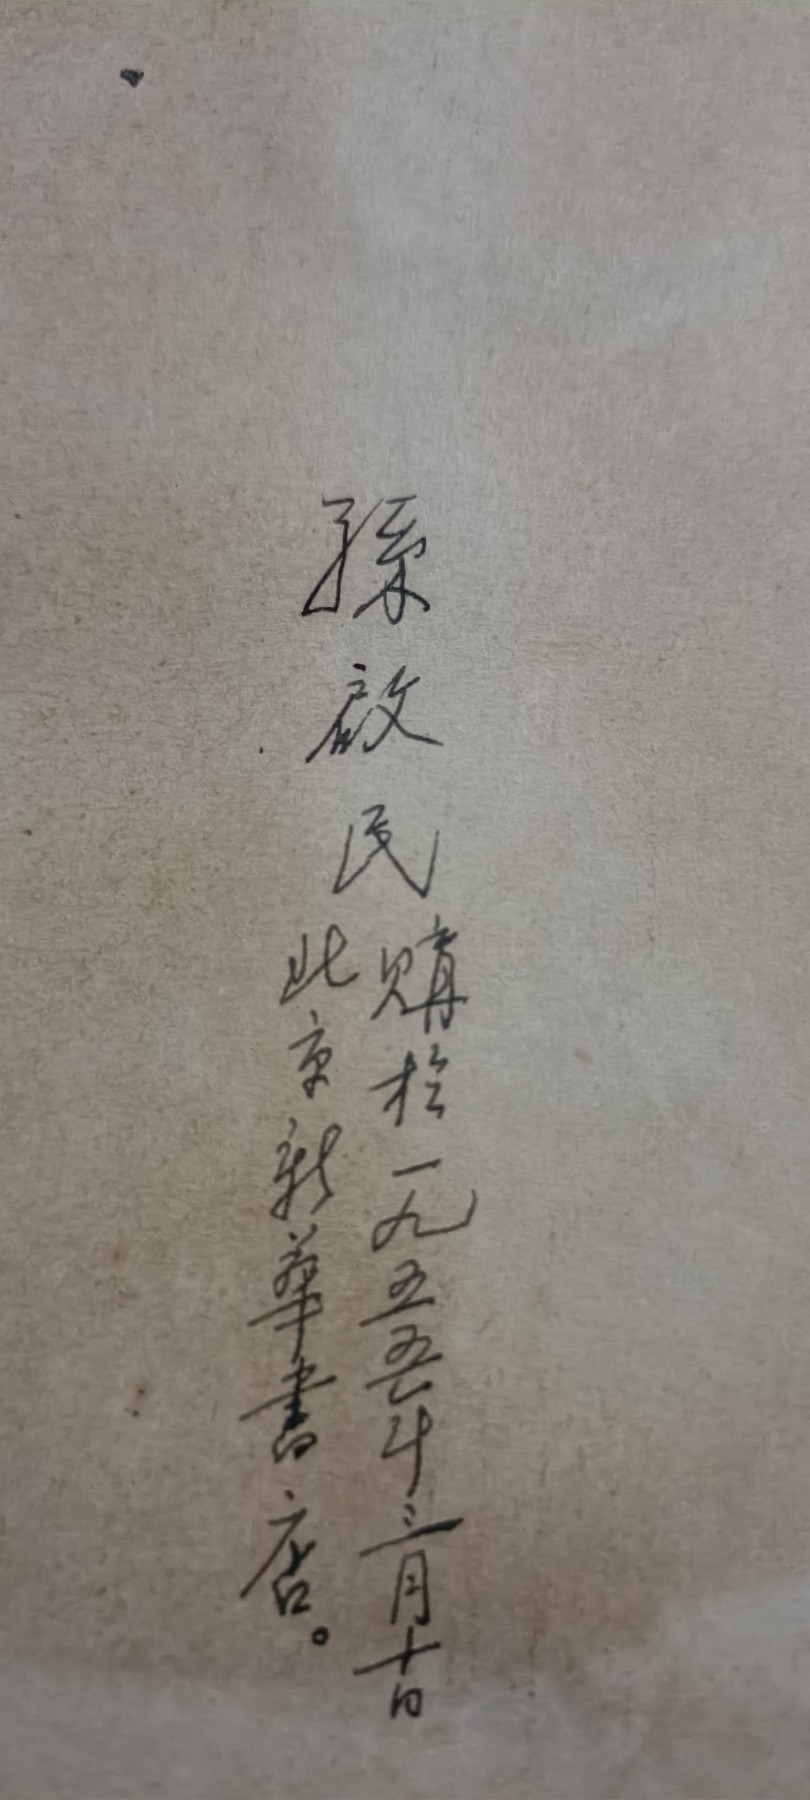 孫啟民
購於一九五五年三月十日
北京新華書店。